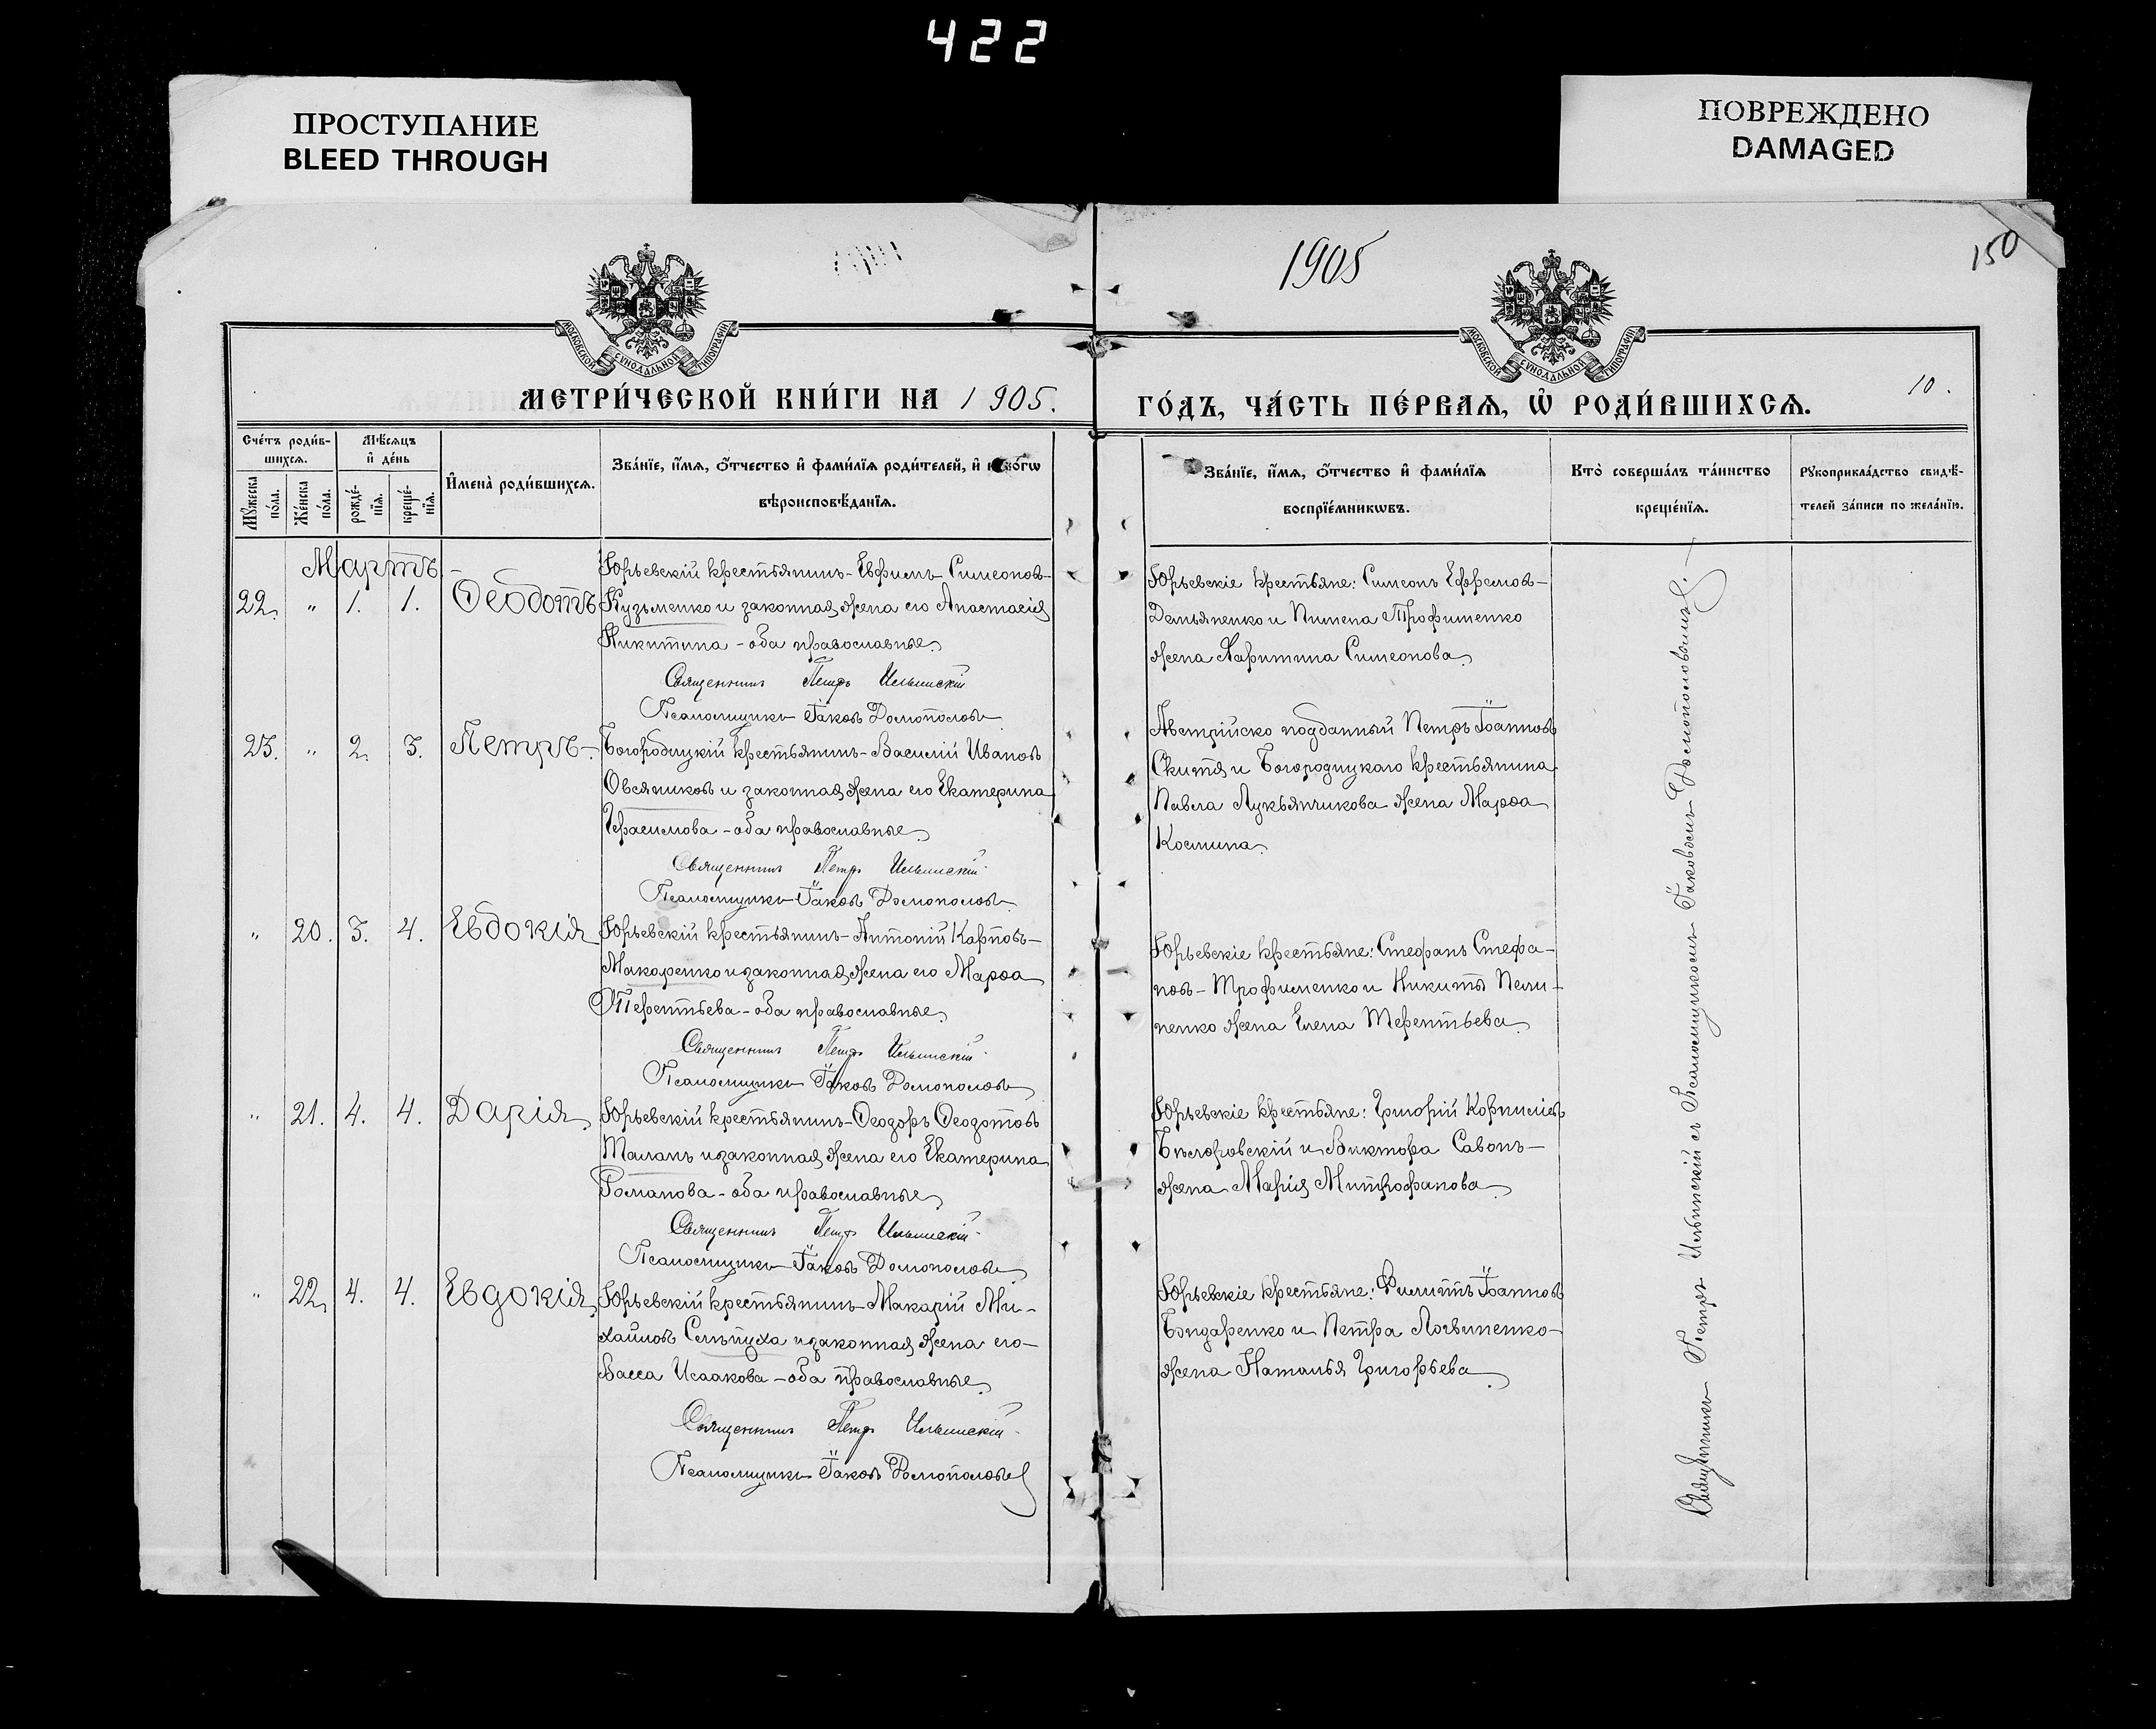 422
ПРОСТУПАНИЕ
BLEED THROUGH
ПОВРЕЖДЕНО
DAMAGED
1905
150
МОСКОВСКОЙ СѴНОДАЛЬНОЙ ТИПОГРАФІИ
МОСКОВСКОЙ СѴНОДАЛЬНОЙ ТИПОГРАФІИ
МЕТРИ́ЧЕСКОЙ КНИ́ГИ НА 1905.
ГО́ДЪ, ЧА́СТЬ ПЕ́РВАѦ, Ѡ҆ РОДИ́ВШИХСѦ.
10.
Сче́тъ роди́в-
шихсѧ.
Мꙋ́жеска по́ла.
Же́нска по́ла.
Мѣ́сѧцъ
и҆ де́нь
рожде́-
нїѧ.
креще́-
нїѧ.
И҆мена̀ роди́вшихсѧ.
Зва́нїе, и҆́мѧ, о҆́тчество и҆ фами́лїѧ роди́телей, и҆ како́гѡ
вѣроисповѣ́данїѧ.
Зва́нїе, и҆́мѧ, о҆́тчество и҆ фами́лїѧ
воспрїе́мникѡвъ.
Кто̀ соверша́лъ та́инство
креще́нїѧ.
Рꙋкоприкла́дство свидѣ́-
телей за́писи по жела́нїю.
Мартъ.
22. " 1. 1. Ѳеодотъ
Юрьевскій крестьянинъ - Евфимъ Симеоновъ -
Кузьменко и законная жена его Анастасія
Никитина - оба православные.
Священникъ Петръ Ильинскій
Псаломщикъ Іаковъ Домополовъ
Юрьевскіе крестьяне: Симеонъ Ефремовъ -
Демьяненко и Пимена Трофименко
жена Харитина Симеонова.
23. " 2. 3. Петръ -
Богородицкій крестьянинъ - Василій Ивановъ
Овсяниковъ и законная жена его Екатерина
Герасимова - оба православные.
Священникъ Петръ Ильинскій
Псаломщикъ Іаковъ Домополовъ
Австрійско подданный Петръ Іоанновъ
Скитя и Богородицкаго крестьянина
Павла Лукьянчикова жена Марѳа
Космина.
" 20. 3. 4. Евдокія
Юрьевскій крестьянинъ - Антоній Карповъ -
Макаренко и законная жена его Марѳа
Терентьева - оба православные.
Священникъ Петръ Ильинскій
Псаломщикъ Іаковъ Домополовъ
Юрьевскіе крестьяне: Стефанъ Стефа-
новъ - Трофименко и Никиты Пили-
пенко жена Елена Терентьева.
" 21. 4. 4. Дарія.
Юрьевскій крестьянинъ - Ѳеодоръ Ѳеодотовъ
Таланъ и законная жена его Екатерина
Романова - оба православные.
Священникъ Петръ Ильинскій
Псаломщикъ Іаковъ Домополовъ
Юрьевскіе крестьяне: Григорій Корниліевъ
и Виктора Савонъ -
жена Марія Митрофанова.
" 22. 4. 4. Евдокія
Юрьевскій крестьянинъ - Макарій Ми-
хайловъ Слѣпуха и законная жена его -
Васса Исаакова - оба православные.
Священникъ Петръ Ильинскій
Псаломщикъ Іаковъ Домополовъ
Юрьевскіе крестьяне: Филиппъ Іоанновъ
Бондаренко и Петра Логвиненко -
жена Наталья Григорьева.
Священникъ Петръ Ильинскій съ Псаломщикомъ Іаковомъ Домополовымъ. -